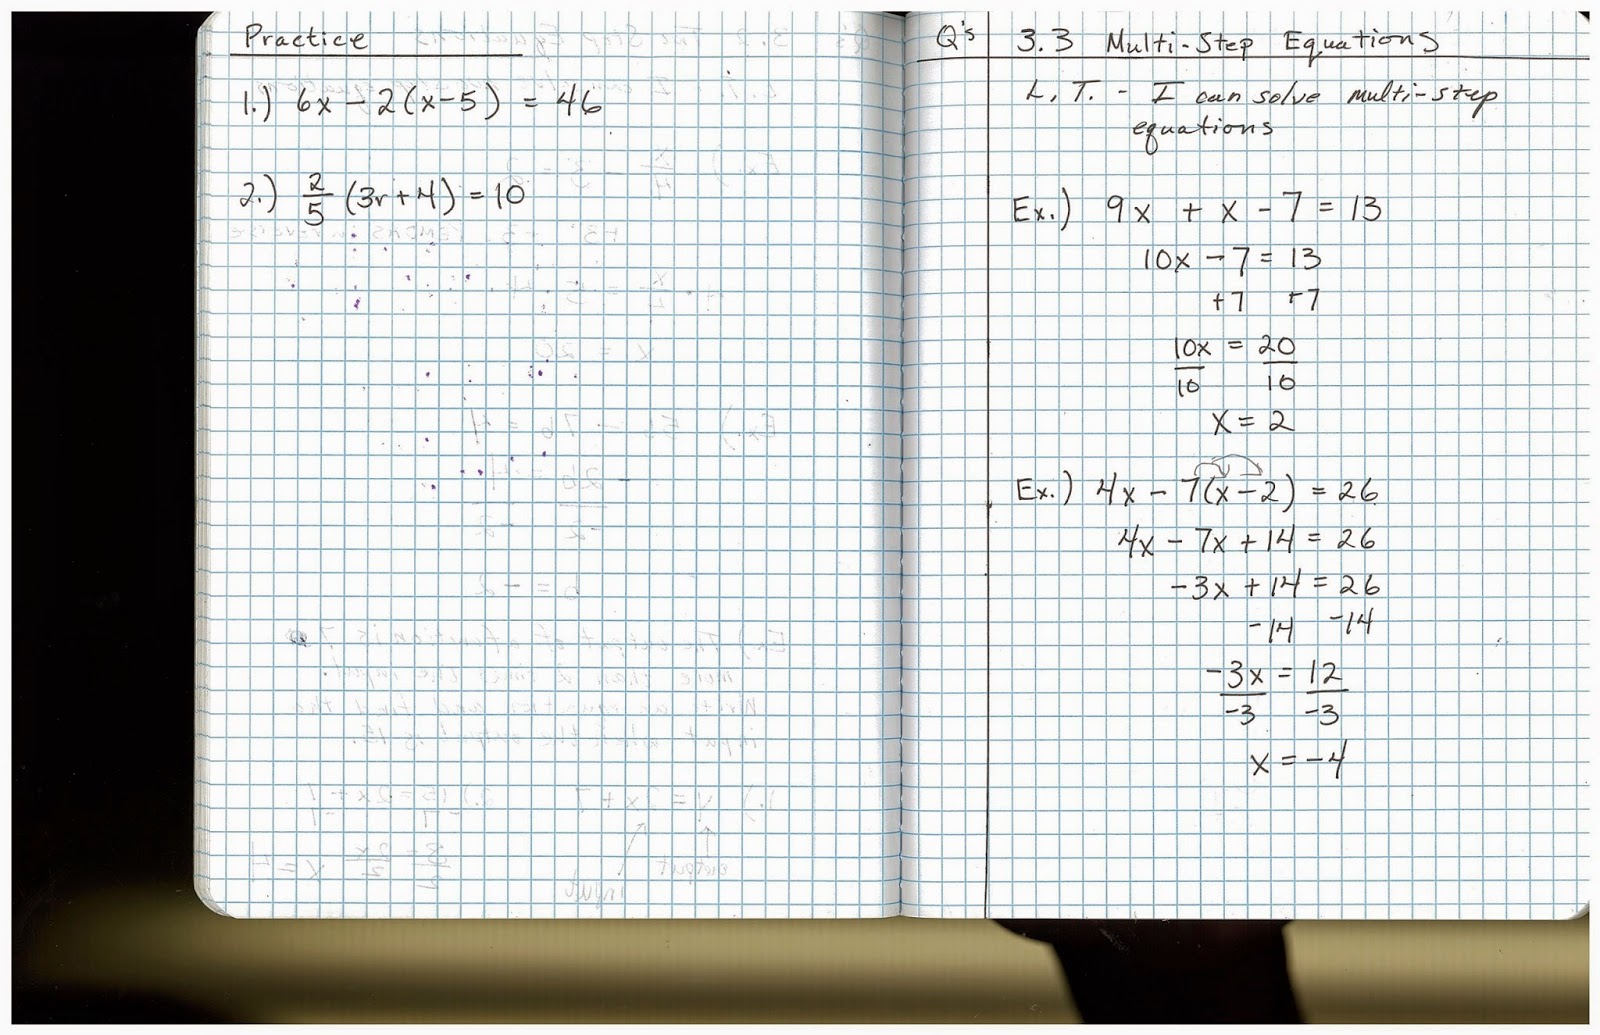 Practice
1.) 6x - 2(x-5) = 46
2.) 2/5 (3r+4) = 10
Q's
3.3 Multi-Step Equations
L.T. - I can solve multi-step
equations
Ex.) 9x + x - 7 = 13
10x - 7 = 13
+7 +7
10x = 20
10 10
x = 2
Ex.) 4x - 7(x-2) = 26
4x - 7x + 14 = 26
-3x + 14 = 26
-14 -14
-3x = 12
-3 -3
x = -4